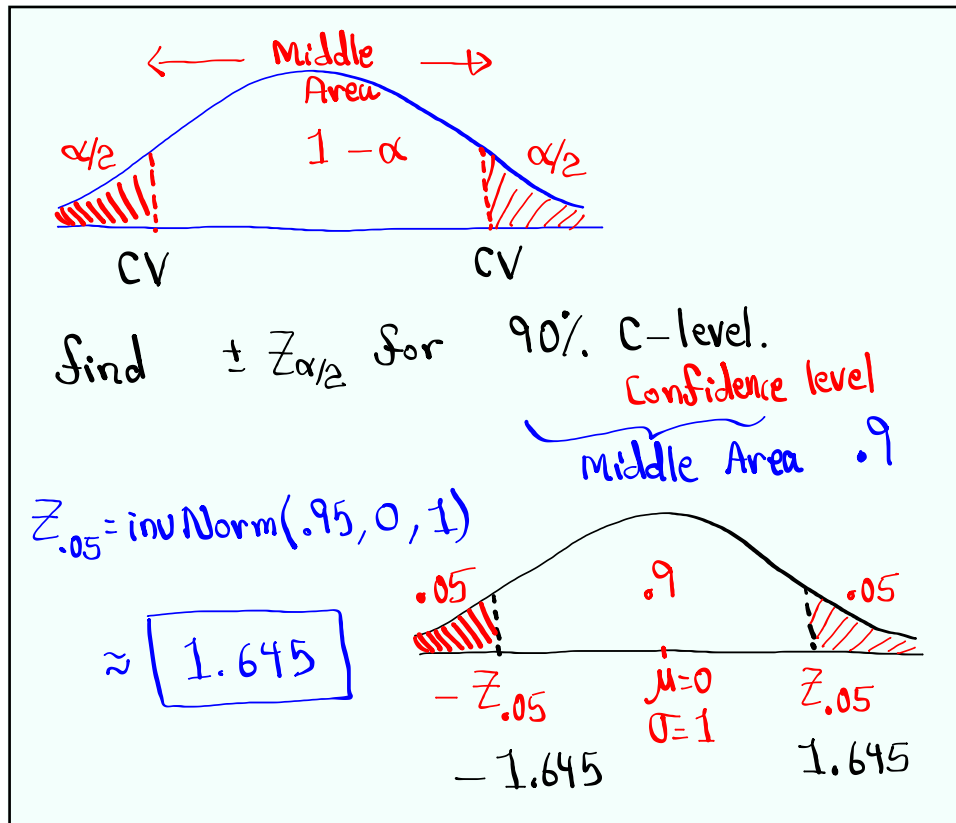 Middle
Area
α/2 1 - α α/2
CV CV
find ± Zα/2 for 90% C-level.
Confidence level
Middle Area .9
Z.05 = invNorm(.95, 0, 1)
.05 .9 .05
≈ 1.645
- Z.05 μ=0 Z.05
σ=1
- 1.645 1.645